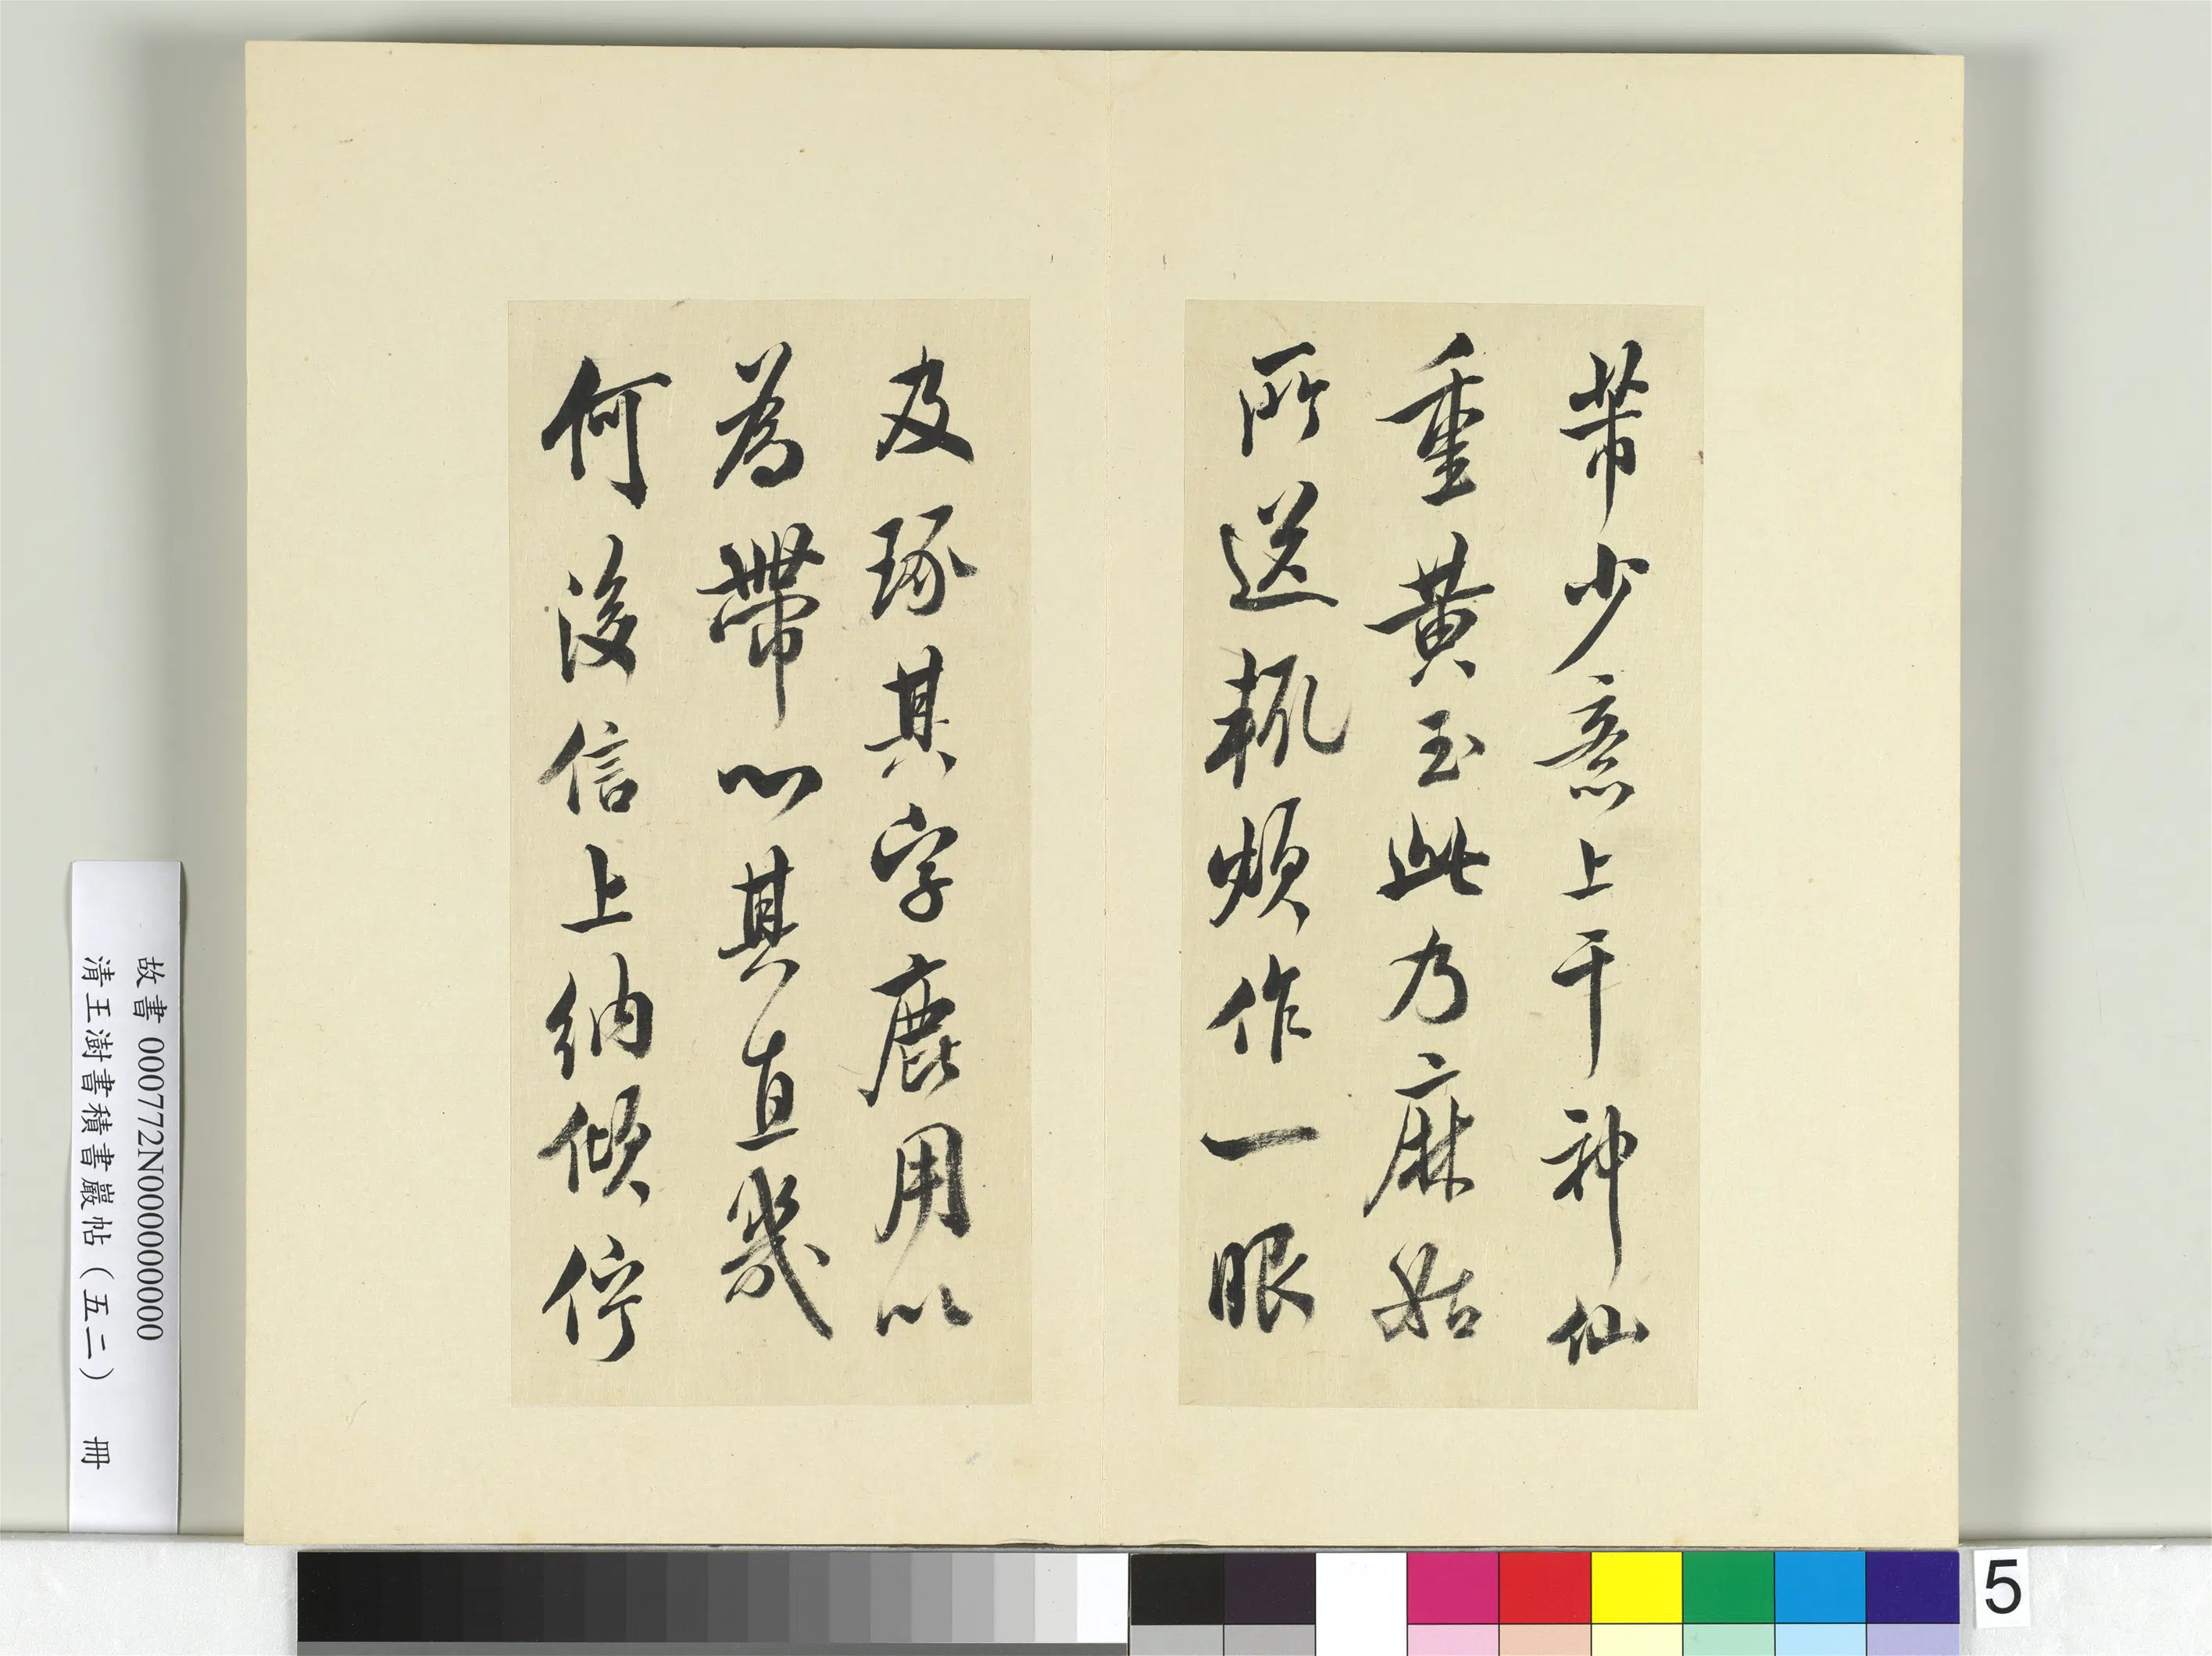 芾少意上干神仙
重黃玉此乃麻姑
所送輒煩作一眼
及琢其字鹿用以
為帶以其直幾
何後信上納傾佇
故書 000772N000000000
清王澍書積書巖帖（五二） 冊
5